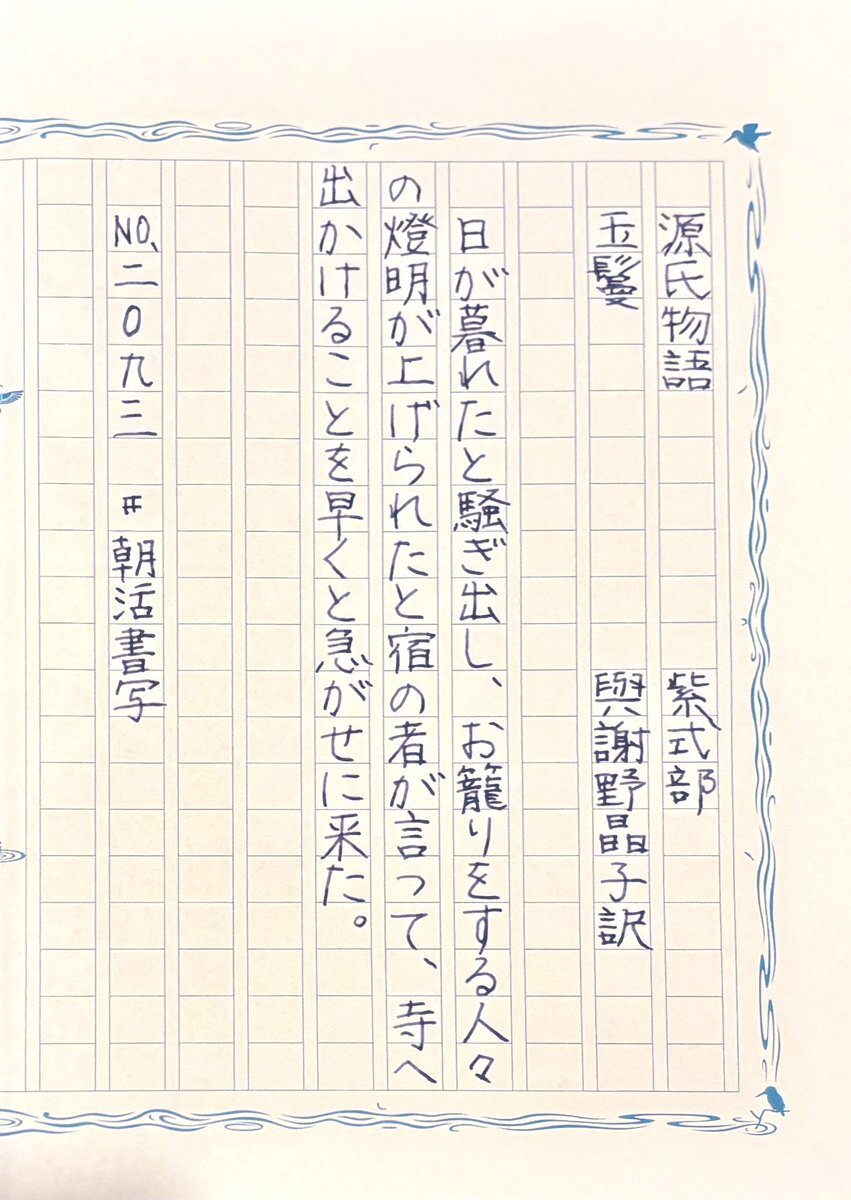 源氏物語 紫式部
玉鬘 與謝野晶子訳
日が暮れたと騒ぎ出し、お籠りをする人々
の燈明が上げられたと宿の者が言って、寺へ
出かけることを早くと急がせに来た。
NO.二〇九三 #朝活書写